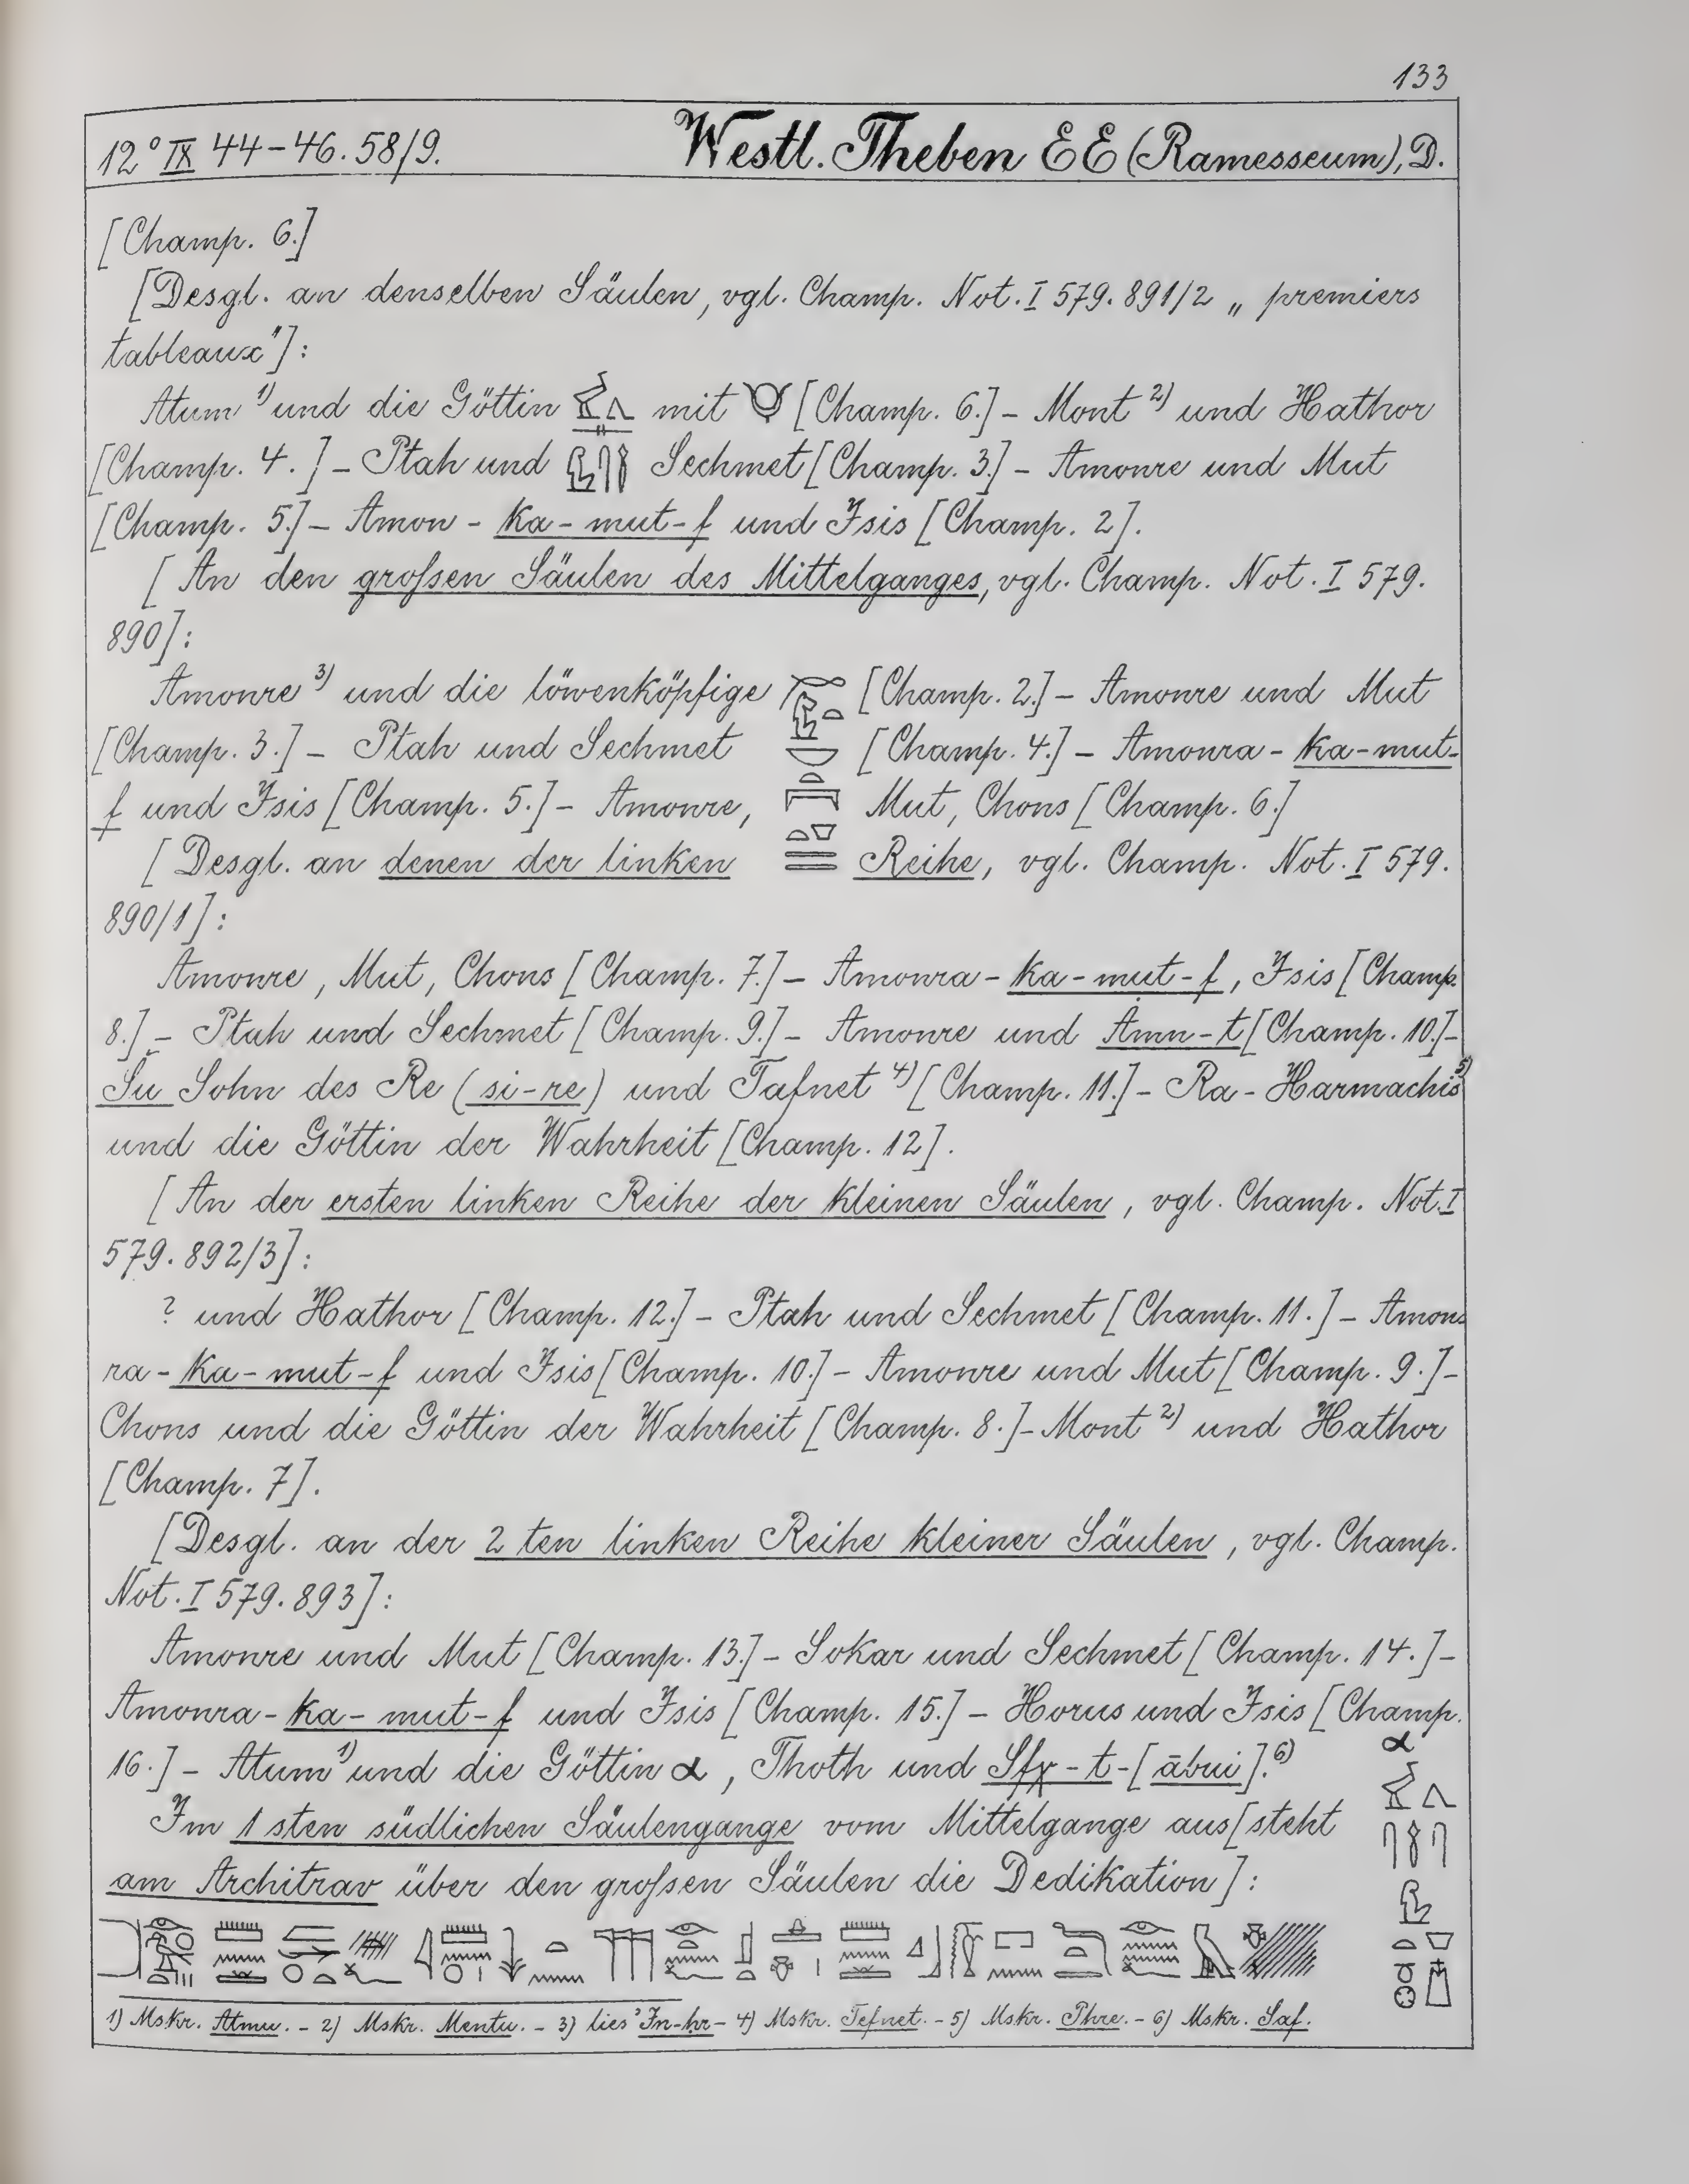 133
12° IX 44–46. 58/9. Westl. Theben EE (Ramesseum), D.
[Champ. 6.]
[Desgl. an denselben Säulen, vgl. Champ. Not. I 579. 891/2 „premiers
tableaux"]:
Atum 1) und die Göttin mit [Champ. 6.] – Mont 2) und Hathor
[Champ. 4.] – Ptah und Sechmet [Champ. 3.] – Amonre und Mut
[Champ. 5.] – Amon - ka - mut - f und Isis [Champ. 2].
[An den großen Säulen des Mittelganges, vgl. Champ. Not. I 579.
890]:
Amonre 3) und die löwenköpfige [Champ. 2.] – Amonre und Mut
[Champ. 3.] – Ptah und Sechmet [Champ. 4.] – Amonra - ka - mut-
f und Isis [Champ. 5.] – Amonre, Mut, Chons [Champ. 6.]
[Desgl. an denen der linken Reihe, vgl. Champ. Not. I 579.
890/1]:
Amonre, Mut, Chons [Champ. 7.] – Amonra - ka - mut - f, Isis [Champ.
8.] – Ptah und Sechmet [Champ. 9.] – Amonre und Amn - t [Champ. 10.] –
Šu Sohn des Re (si-re) und Tafnet 4) [Champ. 11.] – Ra - Harmachis 5)
und die Göttin der Wahrheit [Champ. 12].
[An der ersten linken Reihe der kleinen Säulen, vgl. Champ. Not. I
579. 892/3]:
? und Hathor [Champ. 12.] – Ptah und Sechmet [Champ. 11.] – Amon-
ra - ka - mut - f und Isis [Champ. 10.] – Amonre und Mut [Champ. 9.] –
Chons und die Göttin der Wahrheit [Champ. 8.] – Mont 2) und Hathor
[Champ. 7].
[Desgl. an der 2ten linken Reihe kleiner Säulen, vgl. Champ.
Not. I 579. 893]:
Amonre und Mut [Champ. 13.] – Sokar und Sechmet [Champ. 14.] –
Amonra - ka - mut - f und Isis [Champ. 15.] – Horus und Isis [Champ.
16.] – Atum 1) und die Göttin α, Thoth und Sfχ - t - [ābui]. 6)
α
Im 1sten südlichen Säulengange vom Mittelgange aus [steht
am Architrav über den großen Säulen die Dedikation]:
1) Mskr. Atmu. – 2) Mskr. Mentu. – 3) lies ʾIn-ḥr – 4) Mskr. Tefnet. – 5) Mskr. Phre. – 6) Mskr. Saf.